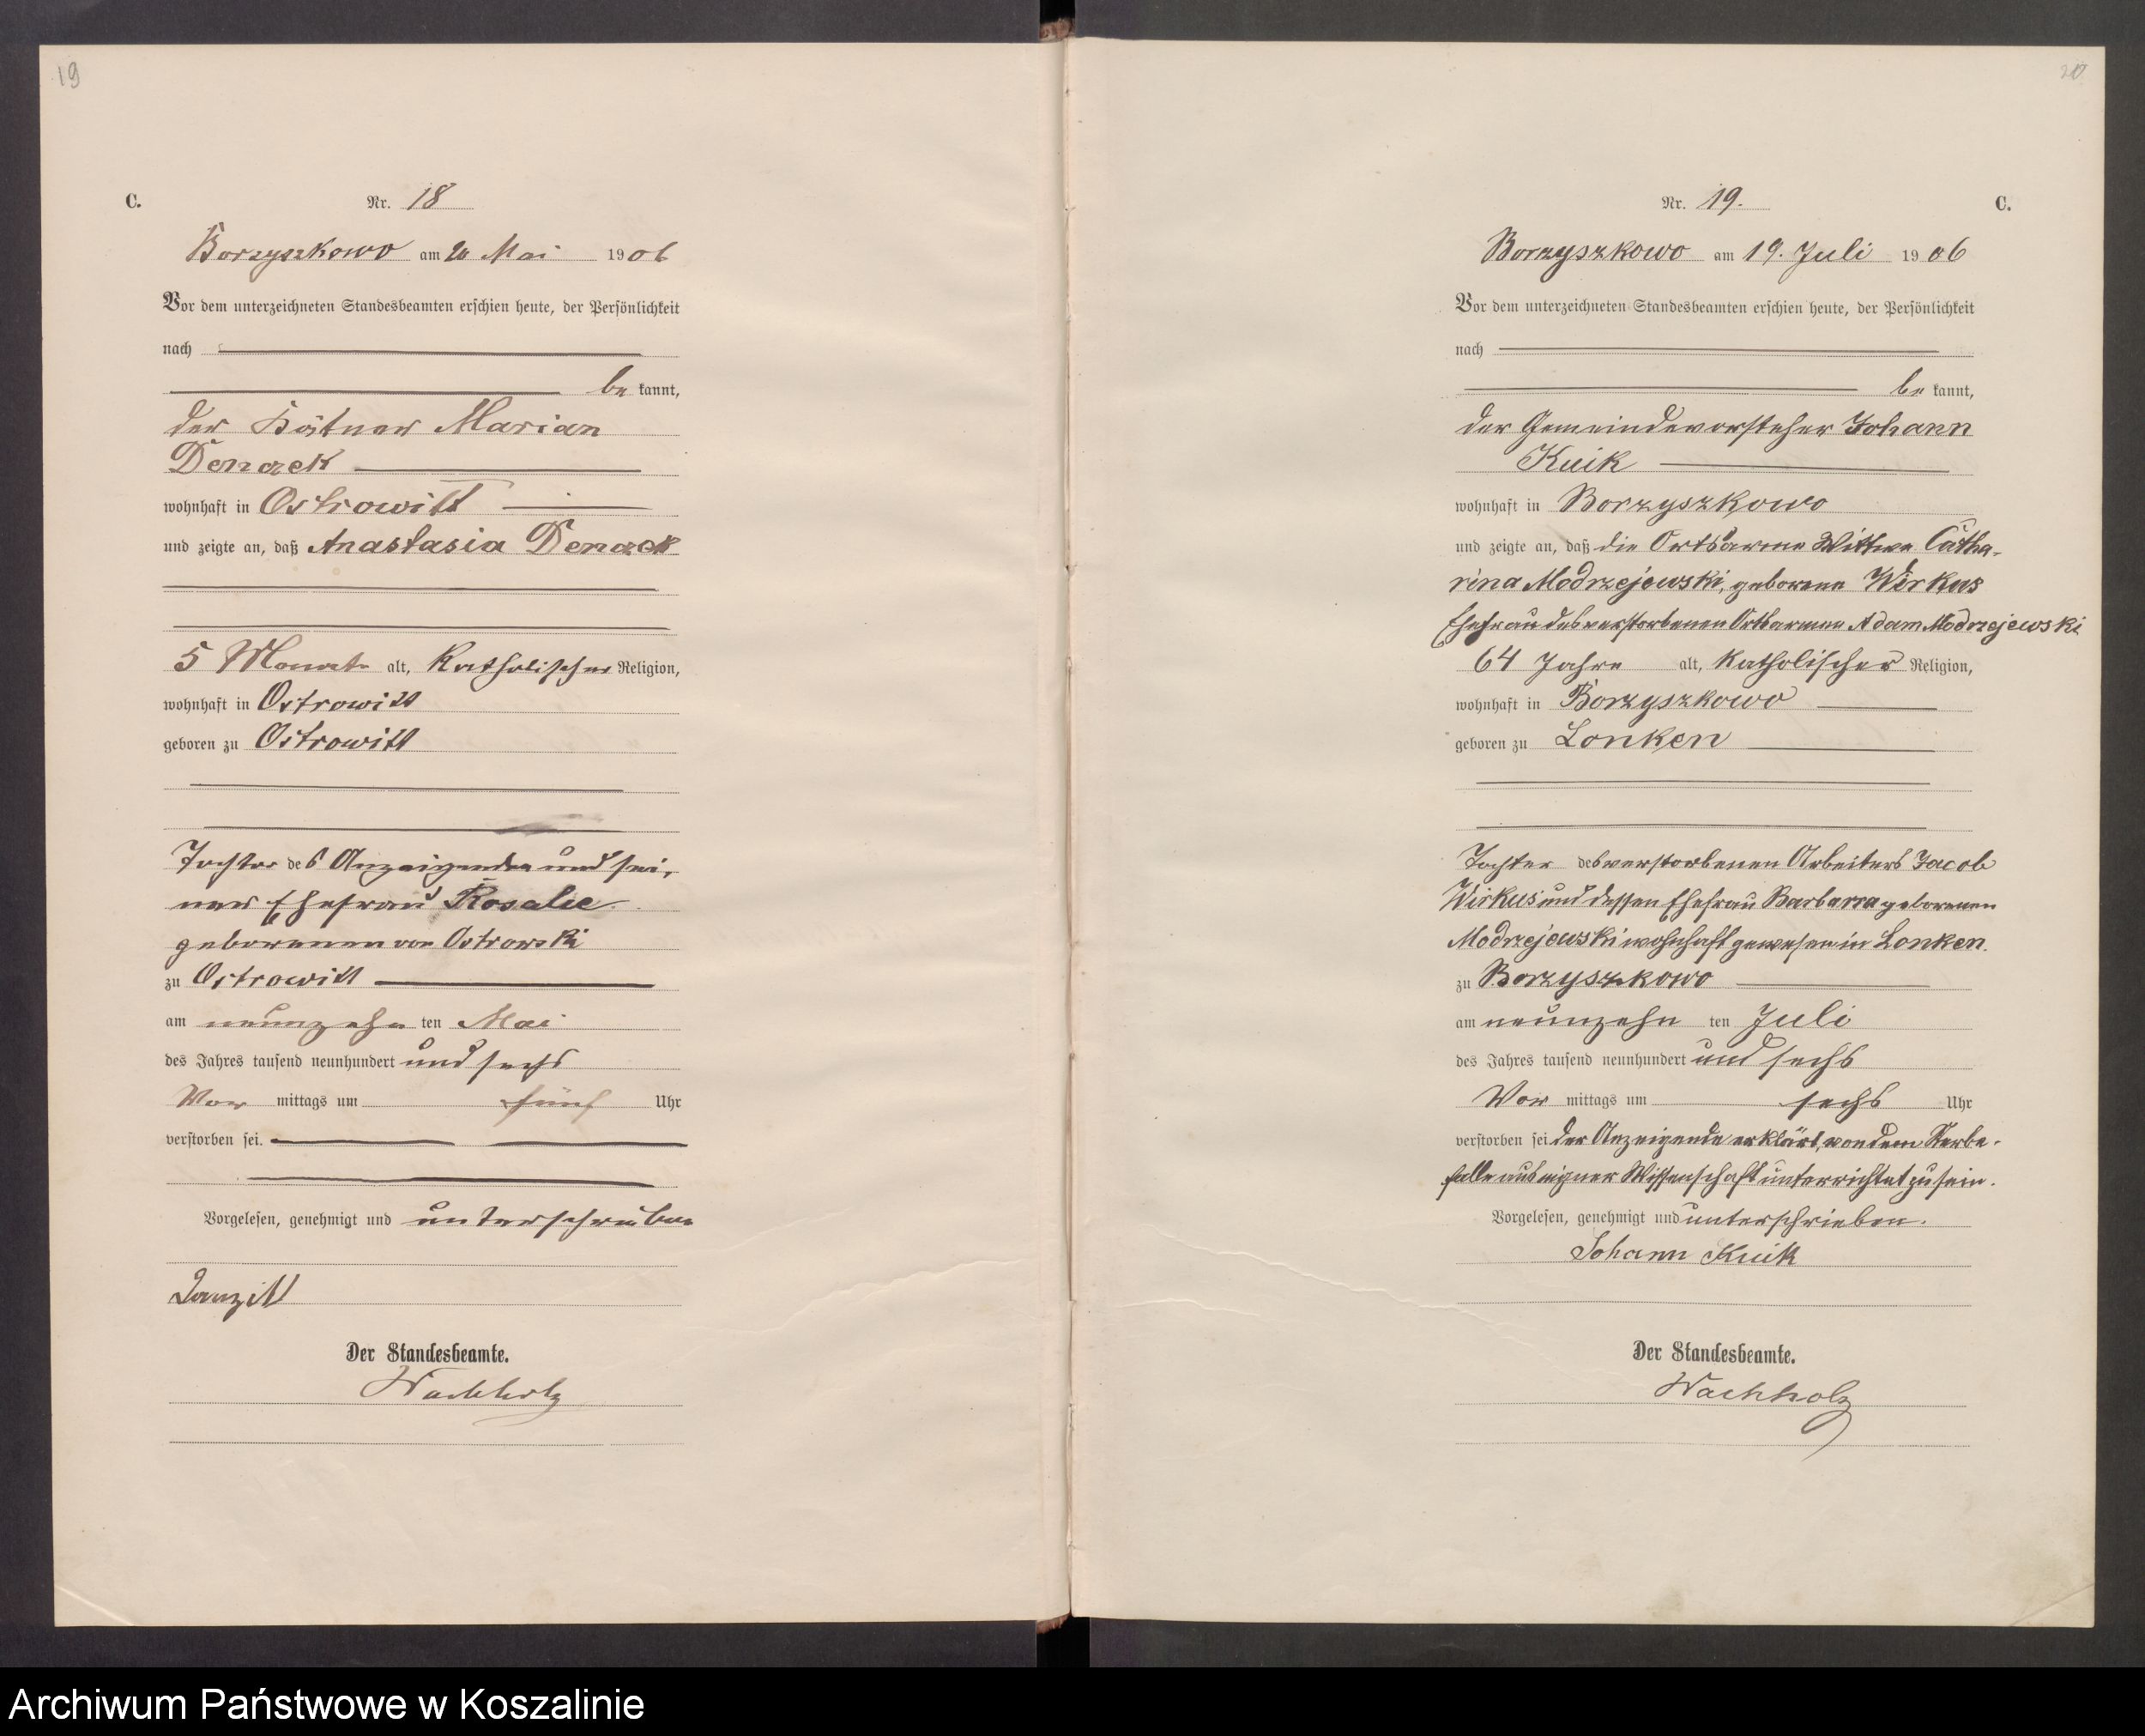 19
C.
Nr. 18
Borzyszkowo am 20 Mai 1906
Vor dem unterzeichneten Standesbeamten erschien heute, der Persönlichkeit
nach
be kannt,
der Kätner Marian
Denaek
wohnhaft in Ostrowitt
und zeigte an, daß Anastasia Denaek
5 Monate alt, Katholischer Religion,
wohnhaft in Ostrowitt
geboren zu Ostrowitt
Tochter des Anzeigenden und sei,
ner Ehefrau Rosalie
geborenen von Ostrowski
zu Ostrowitt
am neunzehn ten Mai
des Jahres tausend neunhundert und sechs
Vor mittags um fünf Uhr
verstorben sei.
Vorgelesen, genehmigt und unterschrieben
Der Standesbeamte.
Wachholz
20
Nr. 19.
C.
Borzyszkowo am 19. Juli 1906
Vor dem unterzeichneten Standesbeamten erschien heute, der Persönlichkeit
nach
be kannt,
der Gemeindevorsteher Johann
Kuik
wohnhaft in Borzyszkowo
und zeigte an, daß die Ortsarme Wittwe Catha-
rina Modrzejewski, geborene Wirkus
Ehefrau des verstorbenen Ortsarmen Adam Modrzejewski
64 Jahre alt, Katholischer Religion,
wohnhaft in Borzyszkowo
geboren zu Lonken
Tochter des verstorbenen Arbeiters Jacob
Wirkus und dessen Ehefrau Barbarra geborenen
Modrzejewski wohnhaft gewesen in Lonken.
zu Borzyszkowo
am neunzehn ten Juli
des Jahres tausend neunhundert und sechs
Vor mittags um sechs Uhr
verstorben sei der Anzeigende erklärt, von dem Sterbe-
falle aus eigner Wissenschaft unterrichtet zu sein.
Vorgelesen, genehmigt und unterschrieben.
Johann Kuik
Der Standesbeamte.
Wachholz
Archiwum Państwowe w Koszalinie